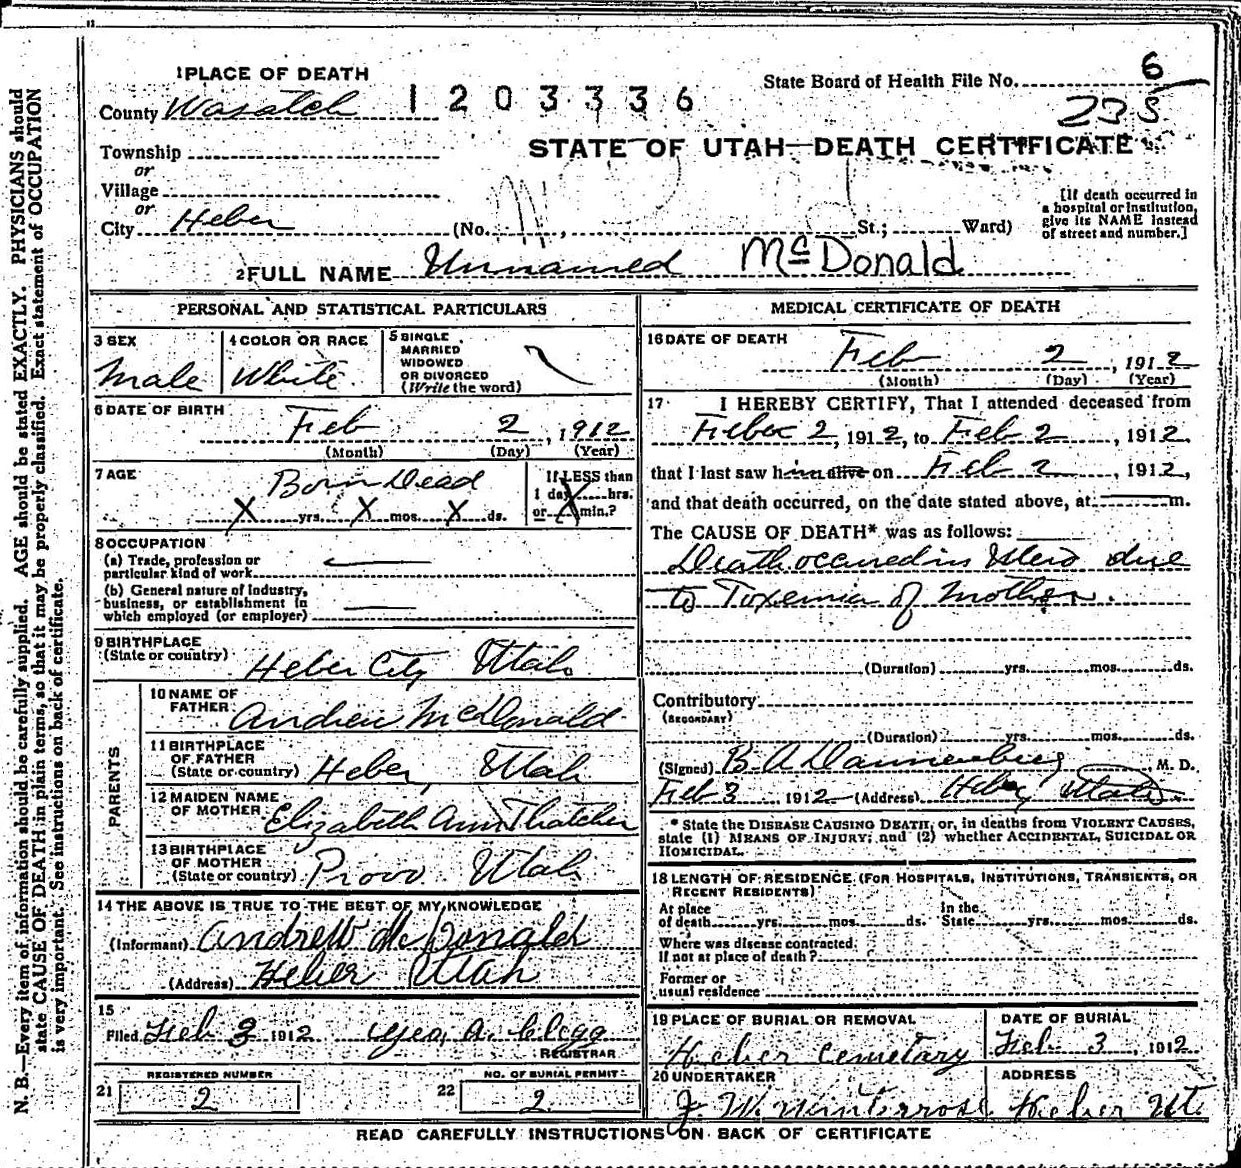 1 PLACE OF DEATH
County Wasatch
1203336
State Board of Health File No. 6
235
STATE OF UTAH—DEATH CERTIFICATE
Township
or
Village
or
City Heber (No. , St.; Ward)
[If death occurred in
a hospital or institution,
give its NAME instead
of street and number.]
2 FULL NAME Unnamed McDonald
PERSONAL AND STATISTICAL PARTICULARS
3 SEX
Male
4 COLOR OR RACE
White
5 SINGLE
MARRIED
WIDOWED
OR DIVORCED
(Write the word)
6 DATE OF BIRTH
Feb 2, 1912
(Month) (Day) (Year)
7 AGE
Born Dead
X yrs. X mos. X ds.
If LESS than
1 day hrs.
or min.?
8 OCCUPATION
(a) Trade, profession or
particular kind of work
(b) General nature of industry,
business, or establishment in
which employed (or employer)
9 BIRTHPLACE
(State or country) Heber City Utah
PARENTS
10 NAME OF
FATHER Andrew McDonald
11 BIRTHPLACE
OF FATHER
(State or country) Heber, Utah
12 MAIDEN NAME
OF MOTHER Elizabeth Ann Thatcher
13 BIRTHPLACE
OF MOTHER
(State or country) Provo Utah
14 THE ABOVE IS TRUE TO THE BEST OF MY KNOWLEDGE
(Informant) Andrew McDonald
(Address) Heber Utah
15
Filed Feb 3 1912 Geo. A. Clegg
REGISTRAR
REGISTERED NUMBER
21 2
NO. OF BURIAL PERMIT
22 2
MEDICAL CERTIFICATE OF DEATH
16 DATE OF DEATH
Feb 2, 1912
(Month) (Day) (Year)
17 I HEREBY CERTIFY, That I attended deceased from
2, 1912, to Feb 2, 1912,
that I last saw him alive on Feb 2, 1912,
and that death occurred, on the date stated above, at m.
The CAUSE OF DEATH* was as follows:
Death occured in Utero due
to Toxemia of Mother.
(Duration) yrs. mos. ds.
Contributory
(SECONDARY)
(Duration) yrs. mos. ds.
(Signed) B. A. Dannenberg M. D.
Feb 3 1912 (Address) Heber, Utah
* State the DISEASE CAUSING DEATH, or, in deaths from VIOLENT CAUSES,
state (1) MEANS OF INJURY; and (2) whether ACCIDENTAL, SUICIDAL OR
HOMICIDAL.
18 LENGTH OF RESIDENCE (FOR HOSPITALS, INSTITUTIONS, TRANSIENTS, OR
RECENT RESIDENTS)
At place
of death yrs. mos. ds.
In the
State yrs. mos. ds.
Where was disease contracted.
If not at place of death?
Former or
usual residence
19 PLACE OF BURIAL OR REMOVAL
Heber Cemetary
DATE OF BURIAL
Feb 3, 1912
20 UNDERTAKER
J. W. Winterrose
ADDRESS
Heber Ut.
READ CAREFULLY INSTRUCTIONS ON BACK OF CERTIFICATE
N. B.—Every item of information should be carefully supplied. AGE should be stated EXACTLY. PHYSICIANS should
state CAUSE OF DEATH in plain terms, so that it may be properly classified. Exact statement of OCCUPATION
is very important. See instructions on back of certificate.